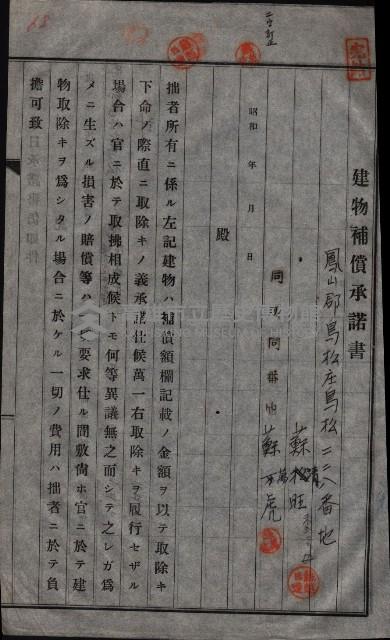 建物補償承諾書
鳳山郡鳥松庄鳥松二二八番地
蘇 旺
同所同番地
蘇 虎
昭和 年 月 日
殿
拙者所有ニ係ル左記建物ハ補償額欄記載ノ金額ヲ以テ取除キ
下命ノ際直ニ取除キノ義承諾仕候萬一右取除キヲ履行セザル
場合ハ官ニ於テ取拂相成候トモ何等異議無之而シテ之レガ爲
メニ生ズル損害ノ賠償等ハ 要求仕ル間敷尙ホ官ニ於テ建
物取除キヲ爲シタル場合ニ於ケル一切ノ費用ハ拙者ニ於テ負
擔可致